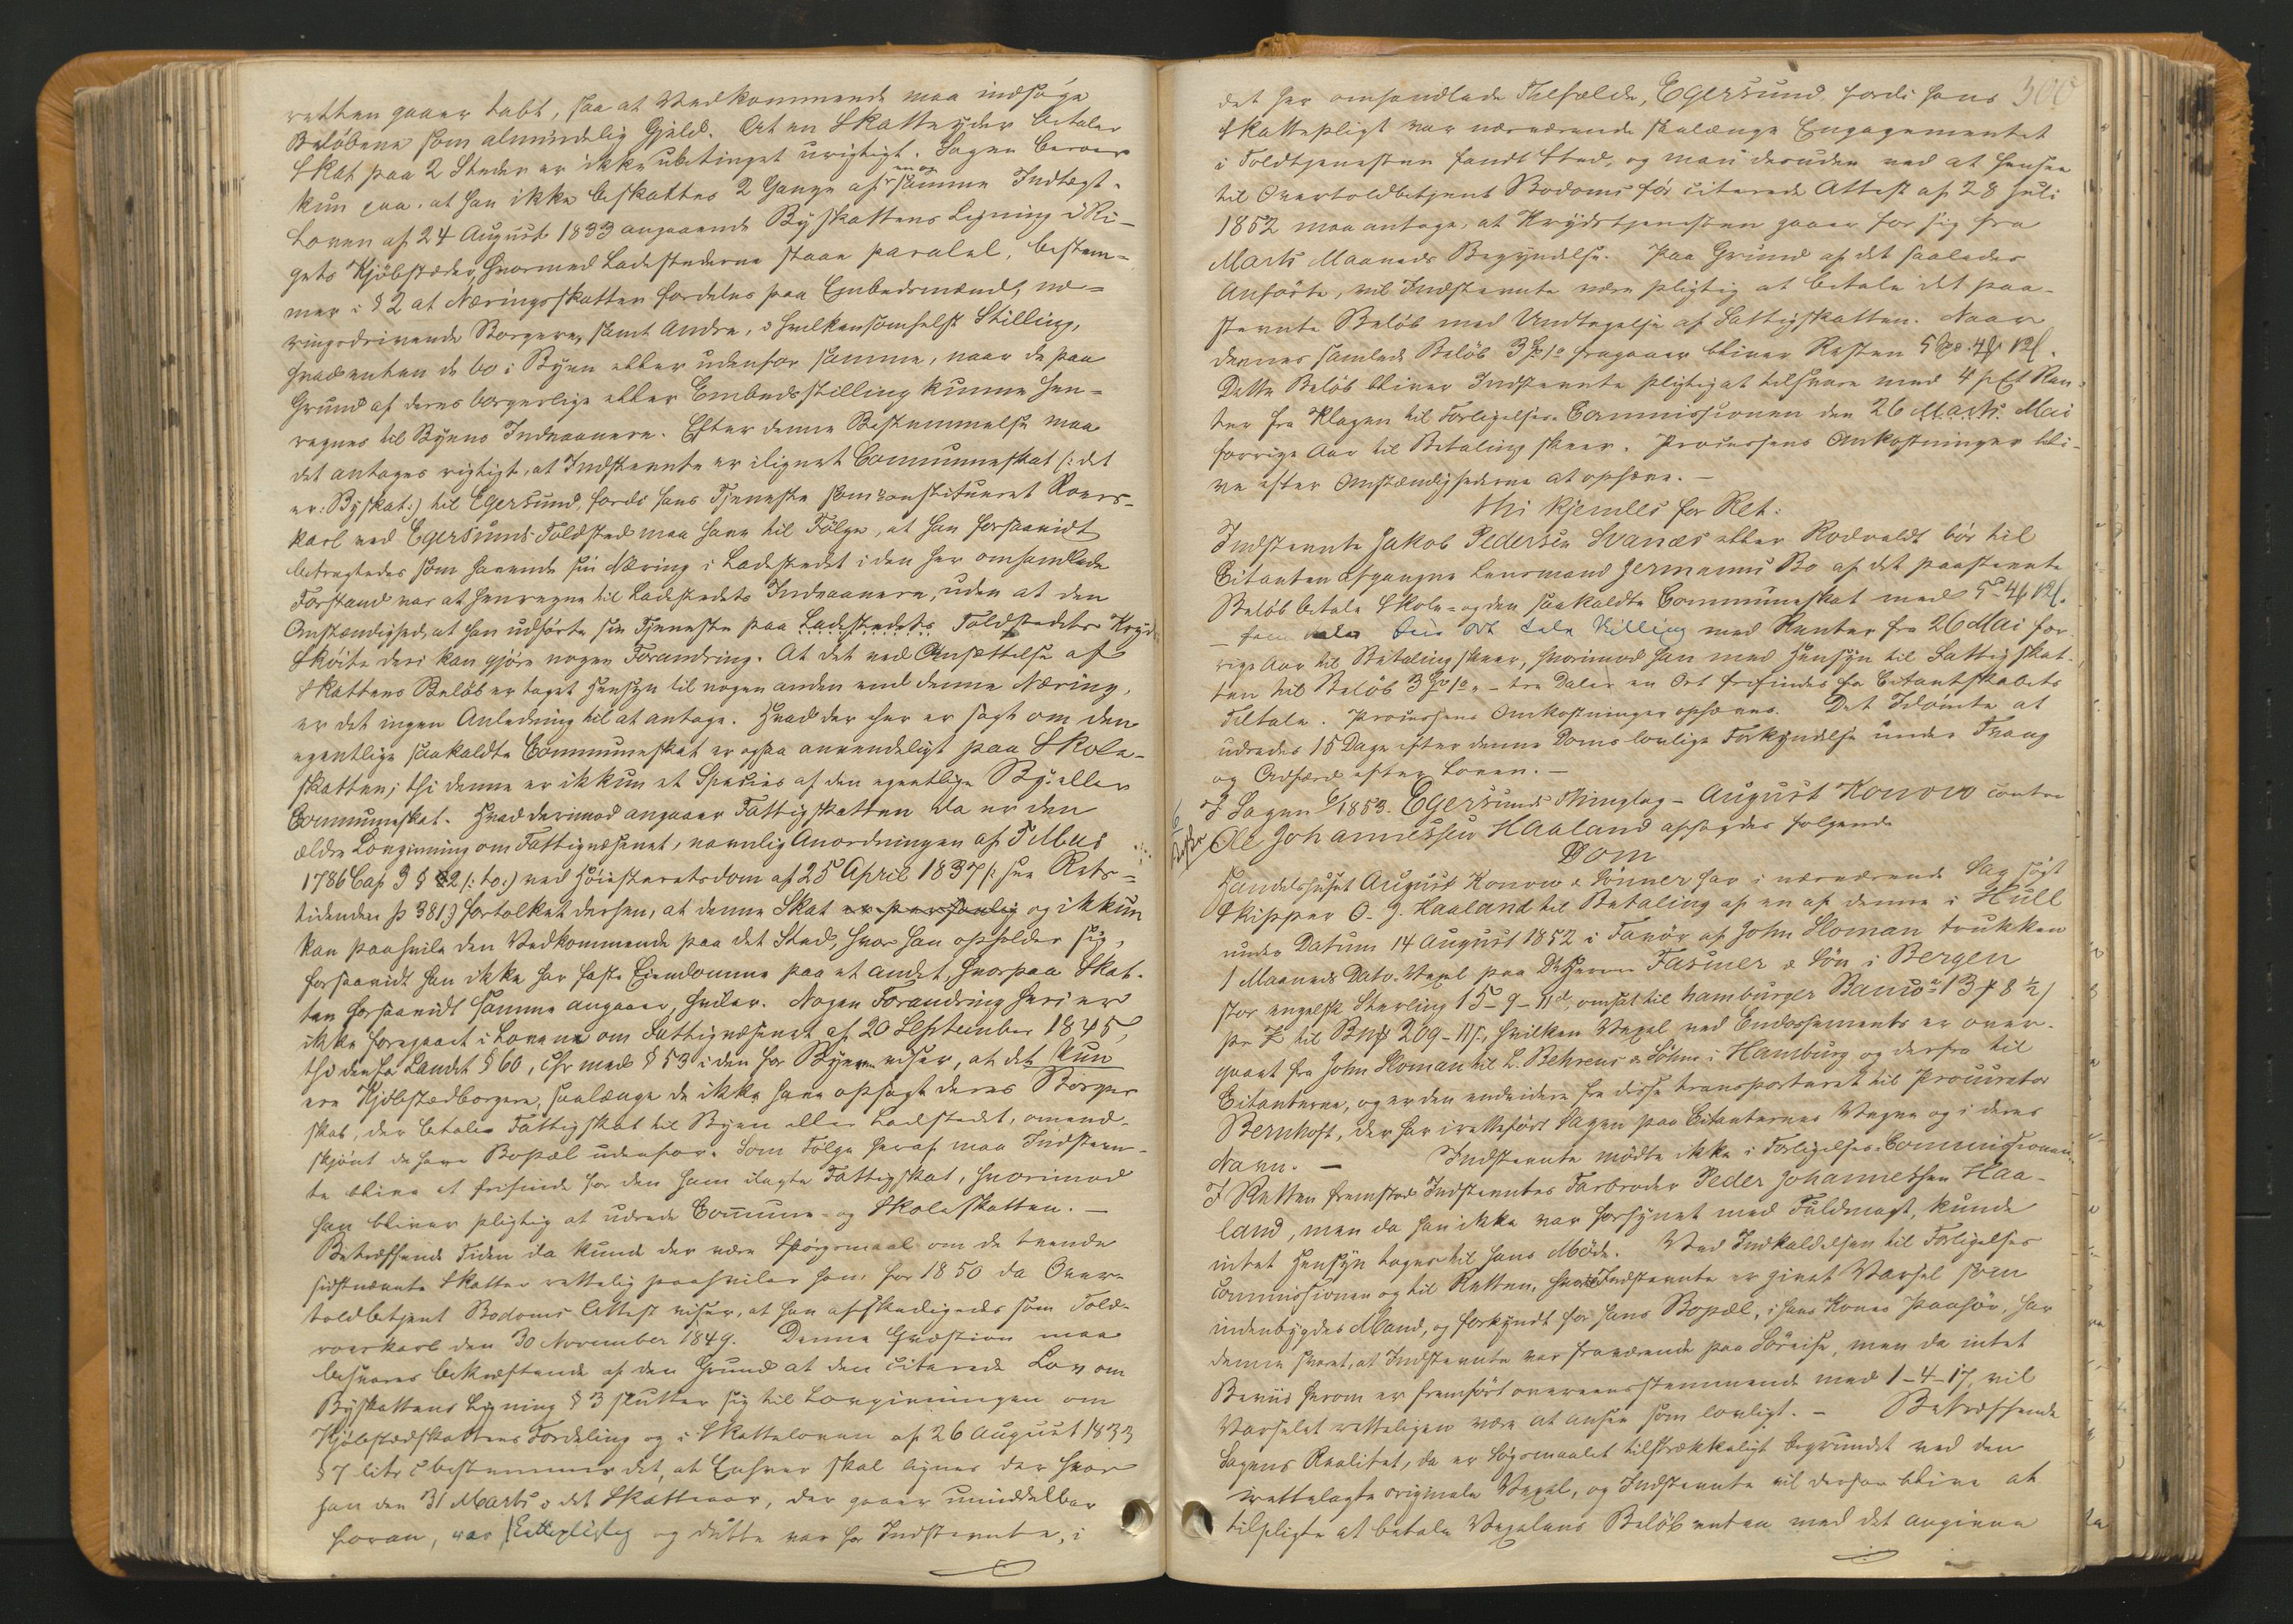 retten gaaer tabt, saa at Vedkommende maa indsøge
Beløbene som almindelig Gjeld. At en Skatteyder betaler
Skat paa 2 Steder er ikke ubetinget urigtigt. Sagen beroer
kun paa, at han ikke beskattes 2 Gange af en og samme Indtægt.
Loven af 24 August 1833 angaaende Byskattens Ligning i Ri-
gets Kjøbstæder, hvormed Ladestederne staae paralel, bestem-
mer i § 2 at Næringsskatten fordeles paa Embedsmænd, næ-
ringsdrivende Borgere, samt Andre, i hvilkensomhelst Stilling,
hvad enten de bo i Byen eller udenfor samme, naar de paa
Grund af deres borgerlige eller Embedsstilling kunne hen-
regnes til Byens Indvaanere. Efter denne Bestemmelse maa
det antages rigtigt, at Indstevnte er ilignet Communeskat (: det
er: Byskat:) til Egersund, fordi hans Tjeneste som constitueret Roers-
karl ved Egersunds Toldsted maa have til Følge, at han forsaavidt
betragtedes som havende sin Næring i Ladestedet i den her omhandlede
Forstand var at henregne til Ladestedets Indvaanere, uden at den
Omstændighed, at han udførte sin Tjeneste paa Ladestedets Toldstedets Kryds
Skøite deri kan gjøre nogen Forandring. At det ved Ansættelse af
Skattens Beløb er taget Hensyn til nogen anden end denne Næring,
er det ingen Anledning til at antage. Hvad der her er sagt om den
egentlige saakaldte Communeskat er ogsaa anvendeligt paa Skole-
skatten; thi denne er ikkun et Species af den egentlige By- eller
Communeskat. Hvad derimod angaaer Fattigskatten da er den
ældre Lovgivning om Fattigvæsenet, navnlig Anordningen af 5 Mai
1786 Cap 3 § 2 (: to:) ved Høiesteretsdom af 25 April 1837 (: see Rets-
tidenden p 381:) fortolket derhen, at denne Skat er personlig og ikkun
kan paahvile den Vedkommende paa det Sted, hvor han opholder sig,
forsaavidt han ikke har faste Eiendomme paa et andet, hvorpaa Skat-
ten forsaavidt samme angaaer, hviler. Nogen Forandring heri er
ikke foregaaet i Lovene om Fattigvæsenet af 20 September 1845,
thi den for Landet § 60, cfr med § 53 i den for Byerne viser, at det kun
ere Kjøbstedborgere, saalænge de ikke have opsagt deres Borger
skab, der betale Fattigskat til Byen eller Ladestedet, omend-
skjønt de have Bopæl udenfor. Som Følge heraf maa Indstevn-
te blive at frifinde for den ham ilagte Fattigskat, hvorimod
han bliver pligtig at udrede Commune- og Skoleskatten. —
Betræffende Tiden da kunde der være Spørgsmaal om de tvende
sidstnævnte Skatter rettelig paahviler ham for 1850 da Over-
toldbetjent Bodoms Attest viser, at han afskedigedes som Told-
roerskarl den 30 November 1849. Denne Qvæstion maa
besvares bekræftende af den Grund at den citerede Lov om
Byskattens Ligning § 3 slutter sig til Lovgivningen om
Kjøbstadskattens Fordeling og i Skatteloven af 26 August 1833
§ 7 litr c bestemmer det, at Enhver skal lignes der hvor
han den 31 Marts i det Skatteaar, der gaaer umiddelbar
foran, var skattepligtig og dette var for Indstevnte, i
300
det her omhandlede Tilfælde, Egersund fordi hans
Skattepligt var nærværende saalænge Engagementet
i Toldtjenesten fandt Sted, og man desuden ved at hensee
til Overtoldbetjent Bodoms før citerede Attest af 28 Juli
1852 maa antage, at Krydstjenesten gaaer for sig fra
Marts Maaneds Begyndelse. Paa Grund af det saaledes
Anførte, vil Indstevnte være pligtig at betale det paa-
stevnte Beløb med Undtagelse af Fattigskatten. Naar
dennes samlede Beløb 3 1 fragaaer bliver Resten 5 4 12 s.
Dette Beløb bliver Indstevnte pligtig at tilsvare med 4 pCt Ren-
ter fra Klagen til Forligelses Commissionen den 26 Marts Mai
forrige Aar til Betaling skeer. Processens Omkostninger bli-
ve efter Omstændighederne at ophæve. —
Thi kjendes for Ret:
Indstevnte Jakob Pedersen Svanæs eller Rodvaldt bør til
Citanten afgangne Lensmand Germanus Bo af det paastevnte
Beløb betale Skole- og den saakaldte Communeskat med 5 - 4 12 s.
— fem daler fire Ort tolv Skilling med Renter fra 26 Mai for-
rige Aar til Betaling skeer, hvorimod han med Hensyn til Fattigskat-
ten til Beløb 3 1 - tre Daler en Ort frifindes for Citantskabets
Tiltale. Processens Omkostninger ophæves. Det Idømte at
udredes 15 Dage efter denne Doms lovlige Forkyndelse under Tvang
og Adfærd efter Loven. —
I Sagen 6/1853. Egersunds Thinglag - August Konow contra
Ole Johannessen Haaland afsagdes følgende
Dom
Handelshuset August Konow & Sønner har i nærværende Sag søgt
Skipper O. J. Haaland til Betaling af en af denne i Hull
under Datum 14 August 1852 i Favør af John Sloman trukken
1 Maaneds Dato Vexel paa D'Herrer Fasmer & Søn i Bergen
stor engelsk Sterling 15 - 9 - 11 d, omsat til hamburger Banco a 13 8 ½
pr £ til 209 - 11 s., hvilken Vexel ved Endossements er over-
gaaet fra John Sloman til L. Behrens & Söhne i Hamburg og derfra til
Citanterne, og er den endvidere fra disse transporteret til Procurator
Bernhoft, der har iretteført Sagen paa Citanternes Vegne og i deres
Navn. — Indstevnte mødte ikke i Forligelses Commissionen.
I Retten fremstod Indstevntes Farbroder Peder Johannessen Haa-
land, men da han ikke var forsynet med Fuldmagt, kunde
intet Hensyn tages til hans Møde. Ved Indkaldelsen til Forligelses
commissionen og til Retten, Indstevnte er givet Varsel som
indenbygdes Mand, og forkyndt for hans Bopæl, i hans Kones Paahør, har
denne svaret, at Indstevnte var fraværende paa Søreise, men da intet
Beviis herom er fremført overeensstemmende med 1-4-17, vil
Varselet retteligen være at ansee som lovligt. — Betræffende
Sagens Realitet, da er Søgsmaalet tilstrækkeligt begrundet ved den
irettelagte originale Vexel, og Indstevnte vil derfor blive at
tilpligte at betale Vexelens Beløb enten med det angivne